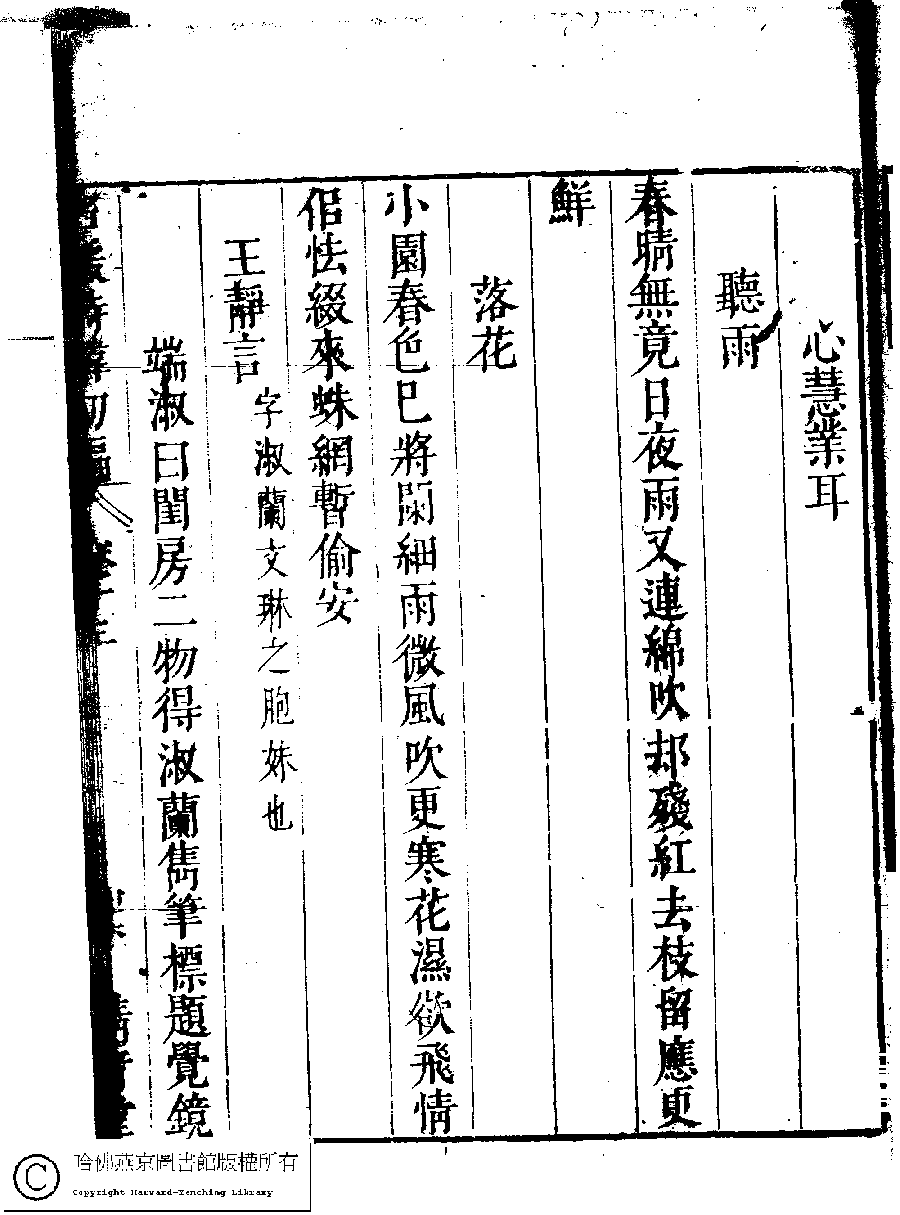 心慧業耳
聽雨
春晴無竟日夜雨又連綿吹却殘紅去枝留應更
鮮
落花
小園春色巳將闌細雨微風吹更寒花濕欲飛情
侶怯綴來蛛網暫偷安
王靜言 字淑蘭文琳之胞妹也
端淑曰閨房二物得淑蘭雋筆標題覺鏡
初編 卷十
哈佛燕京圖書館版權所有
Copyright Harvard-Yenching Library